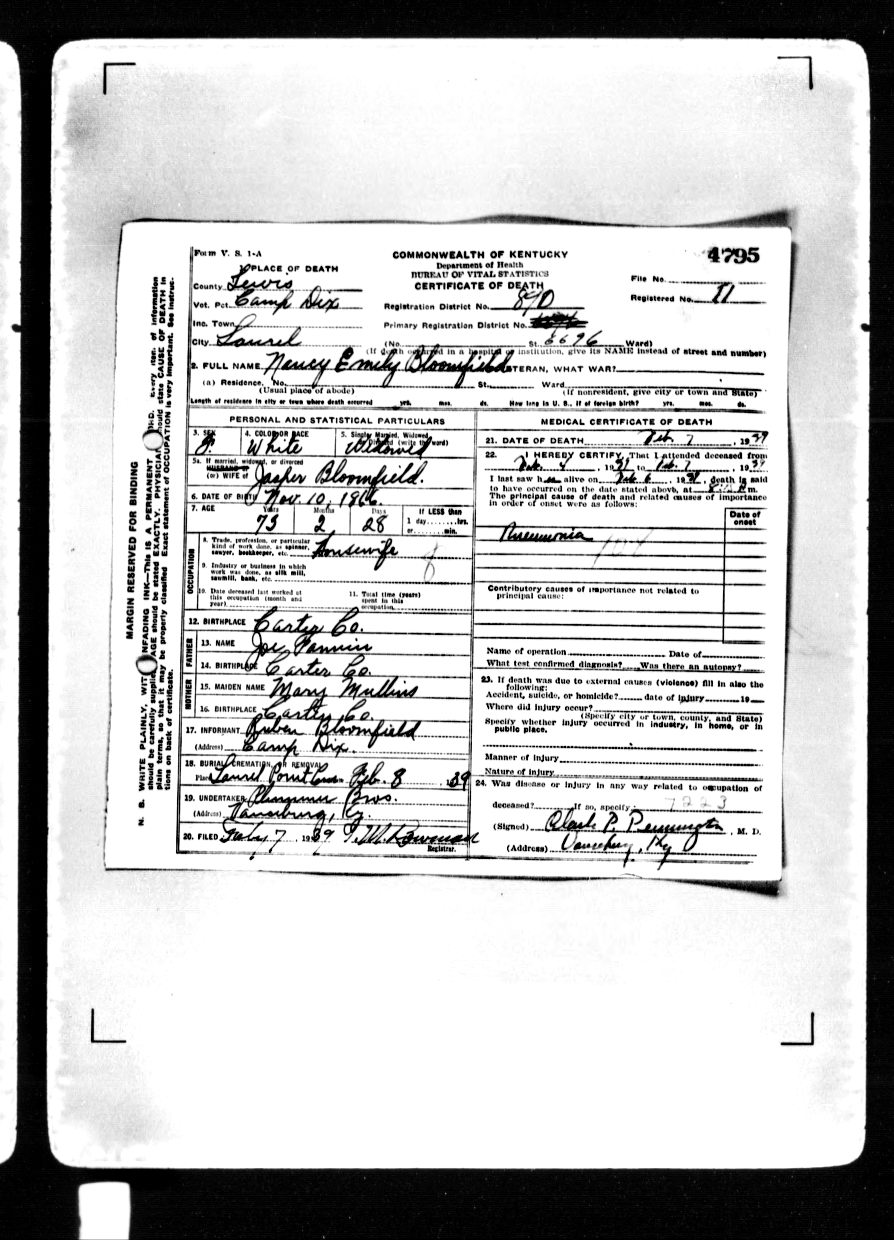 Form V. S. 1-A
COMMONWEALTH OF KENTUCKY
4795
1 PLACE OF DEATH
Department of Health
BUREAU OF VITAL STATISTICS
CERTIFICATE OF DEATH
County Lewis
File No.
Vot. Pct. Camp Dix
Registration District No. 890
Registered No. 11
Inc. Town
Primary Registration District No.
City Laurel
(No. St. 6696 Ward)
(If death occurred in a hospital or institution, give its NAME instead of street and number)
2. FULL NAME Nancy Emily Bloomfield VETERAN, WHAT WAR?
(a) Residence. No. St. Ward
(Usual place of abode) (If nonresident, give city or town and State)
Length of residence in city or town where death occurred yrs. mos. ds. How long in U. S., if of foreign birth? yrs. mos. ds.
PERSONAL AND STATISTICAL PARTICULARS
3. SEX
F.
4. COLOR OR RACE
White
5. Single, Married, Widowed, Divorced (write the word)
Widowed
5a. If married, widowed, or divorced
HUSBAND of
(or) WIFE of Jasper Bloomfield.
6. DATE OF BIRTH Nov. 10, 1866.
7. AGE Years Months Days If LESS than
73 2 28 1 day hrs.
or min.
OCCUPATION
8. Trade, profession, or particular
kind of work done, as spinner,
sawyer, bookkeeper, etc. Housewife
9. Industry or business in which
work was done, as silk mill,
sawmill, bank, etc.
10. Date deceased last worked at
this occupation (month and
year)
11. Total time (years)
spent in this
occupation
12. BIRTHPLACE Carter Co.
FATHER
13. NAME Joe Fannin
14. BIRTHPLACE Carter Co.
MOTHER
15. MAIDEN NAME Mary Mullins
16. BIRTHPLACE Carter Co.
17. INFORMANT Ruben Bloomfield
(Address) Camp Dix.
18. BURIAL, CREMATION, OR REMOVAL
Place Laurel Point Feb. 8 1939
19. UNDERTAKER Plummer Bros.
(Address) Vanceburg, Ky.
20. FILED Feb 7 1939 Bowman
Registrar.
MEDICAL CERTIFICATE OF DEATH
21. DATE OF DEATH Feb. 7, 1939
22. I HEREBY CERTIFY, That I attended deceased from
Feb. 4, 1939 to Feb. 7, 1939
I last saw her alive on Feb. 6, 1939, death is said
to have occurred on the date stated above, at m.
The principal cause of death and related causes of importance
in order of onset were as follows:
Date of
onset
Pneumonia
Contributory causes of importance not related to
principal cause:
Name of operation Date of
What test confirmed diagnosis? Was there an autopsy?
23. If death was due to external causes (violence) fill in also the
following:
Accident, suicide, or homicide? date of injury 19
Where did injury occur?
(Specify city or town, county, and State)
Specify whether injury occurred in industry, in home, or in
public place.
Manner of injury
Nature of injury
24. Was disease or injury in any way related to occupation of
deceased? If so, specify 7223
(Signed) Clark P. Pennington, M. D.
(Address) Vanceburg, Ky
MARGIN RESERVED FOR BINDING
N. B. WRITE PLAINLY, WITH UNFADING INK—THIS IS A PERMANENT RECORD. Every item of information
should be carefully supplied. AGE should be stated EXACTLY. PHYSICIANS should state CAUSE OF DEATH in
plain terms, so that it may be properly classified. Exact statement of OCCUPATION is very important. See instruc-
tions on back of certificate.